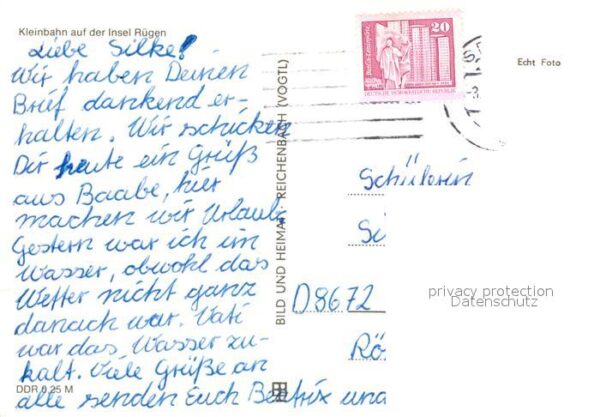 Kleinbahn auf der Insel Rügen
Liebe Silke!
Wir haben Deinen
Brief dankend er-
halten. Wir schicken
Dir heute ein Grüß
aus Baabe, hier
machen wir Urlaub.
Gestern war ich im
Wasser, obwohl das
Wetter nicht ganz
danach war. Vati
war das Wasser zu-
kalt. Viele Grüße an
alle senden Euch Beatrix und
DDR 0,25 M
BILD UND HEIMAT REICHENBACH (VOGTL)
20
DEUTSCHE DEMOKRATISCHE REPUBLIK
Echt Foto
Schülerin
Si
D8672
Rö
privacy protection
Datenschutz